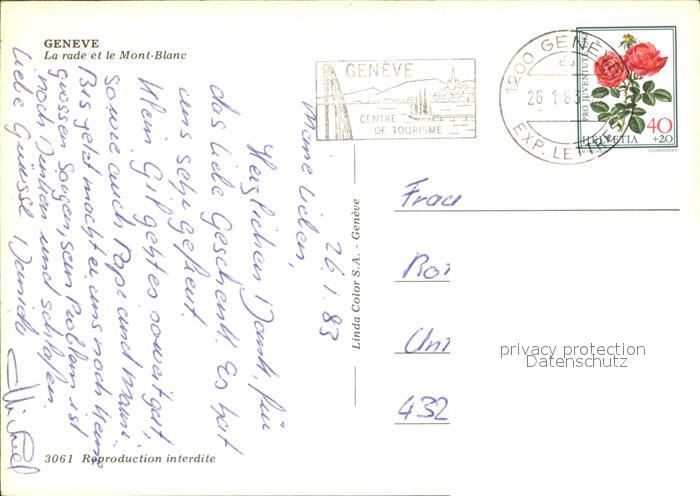 GENEVE
La rade et le Mont-Blanc
GENÈVE
CENTRE
DE TOURISME
1200 GENÈVE
26 1 83
EXP. LETTRES
PRO JUVENTUTE
40
+20
HELVETIA
COURVOISIER
26.1.83
Meine Lieben,
Herzlichen Dank, für
das liebe Geschenk. Es hat
uns sehr gefreut.
Klein Gil geht es soweit gut,
sowie auch Papi und Mami.
Bis jetzt macht er uns noch keine
grossen Sorgen, sein Problem ist
noch Trinken und schlafen.
Liebe Grüsse Daniela
Linda Color S.A. - Genève
Frau
Ro
Unt
432
privacy protection
Datenschutz
3061 Reproduction interdite